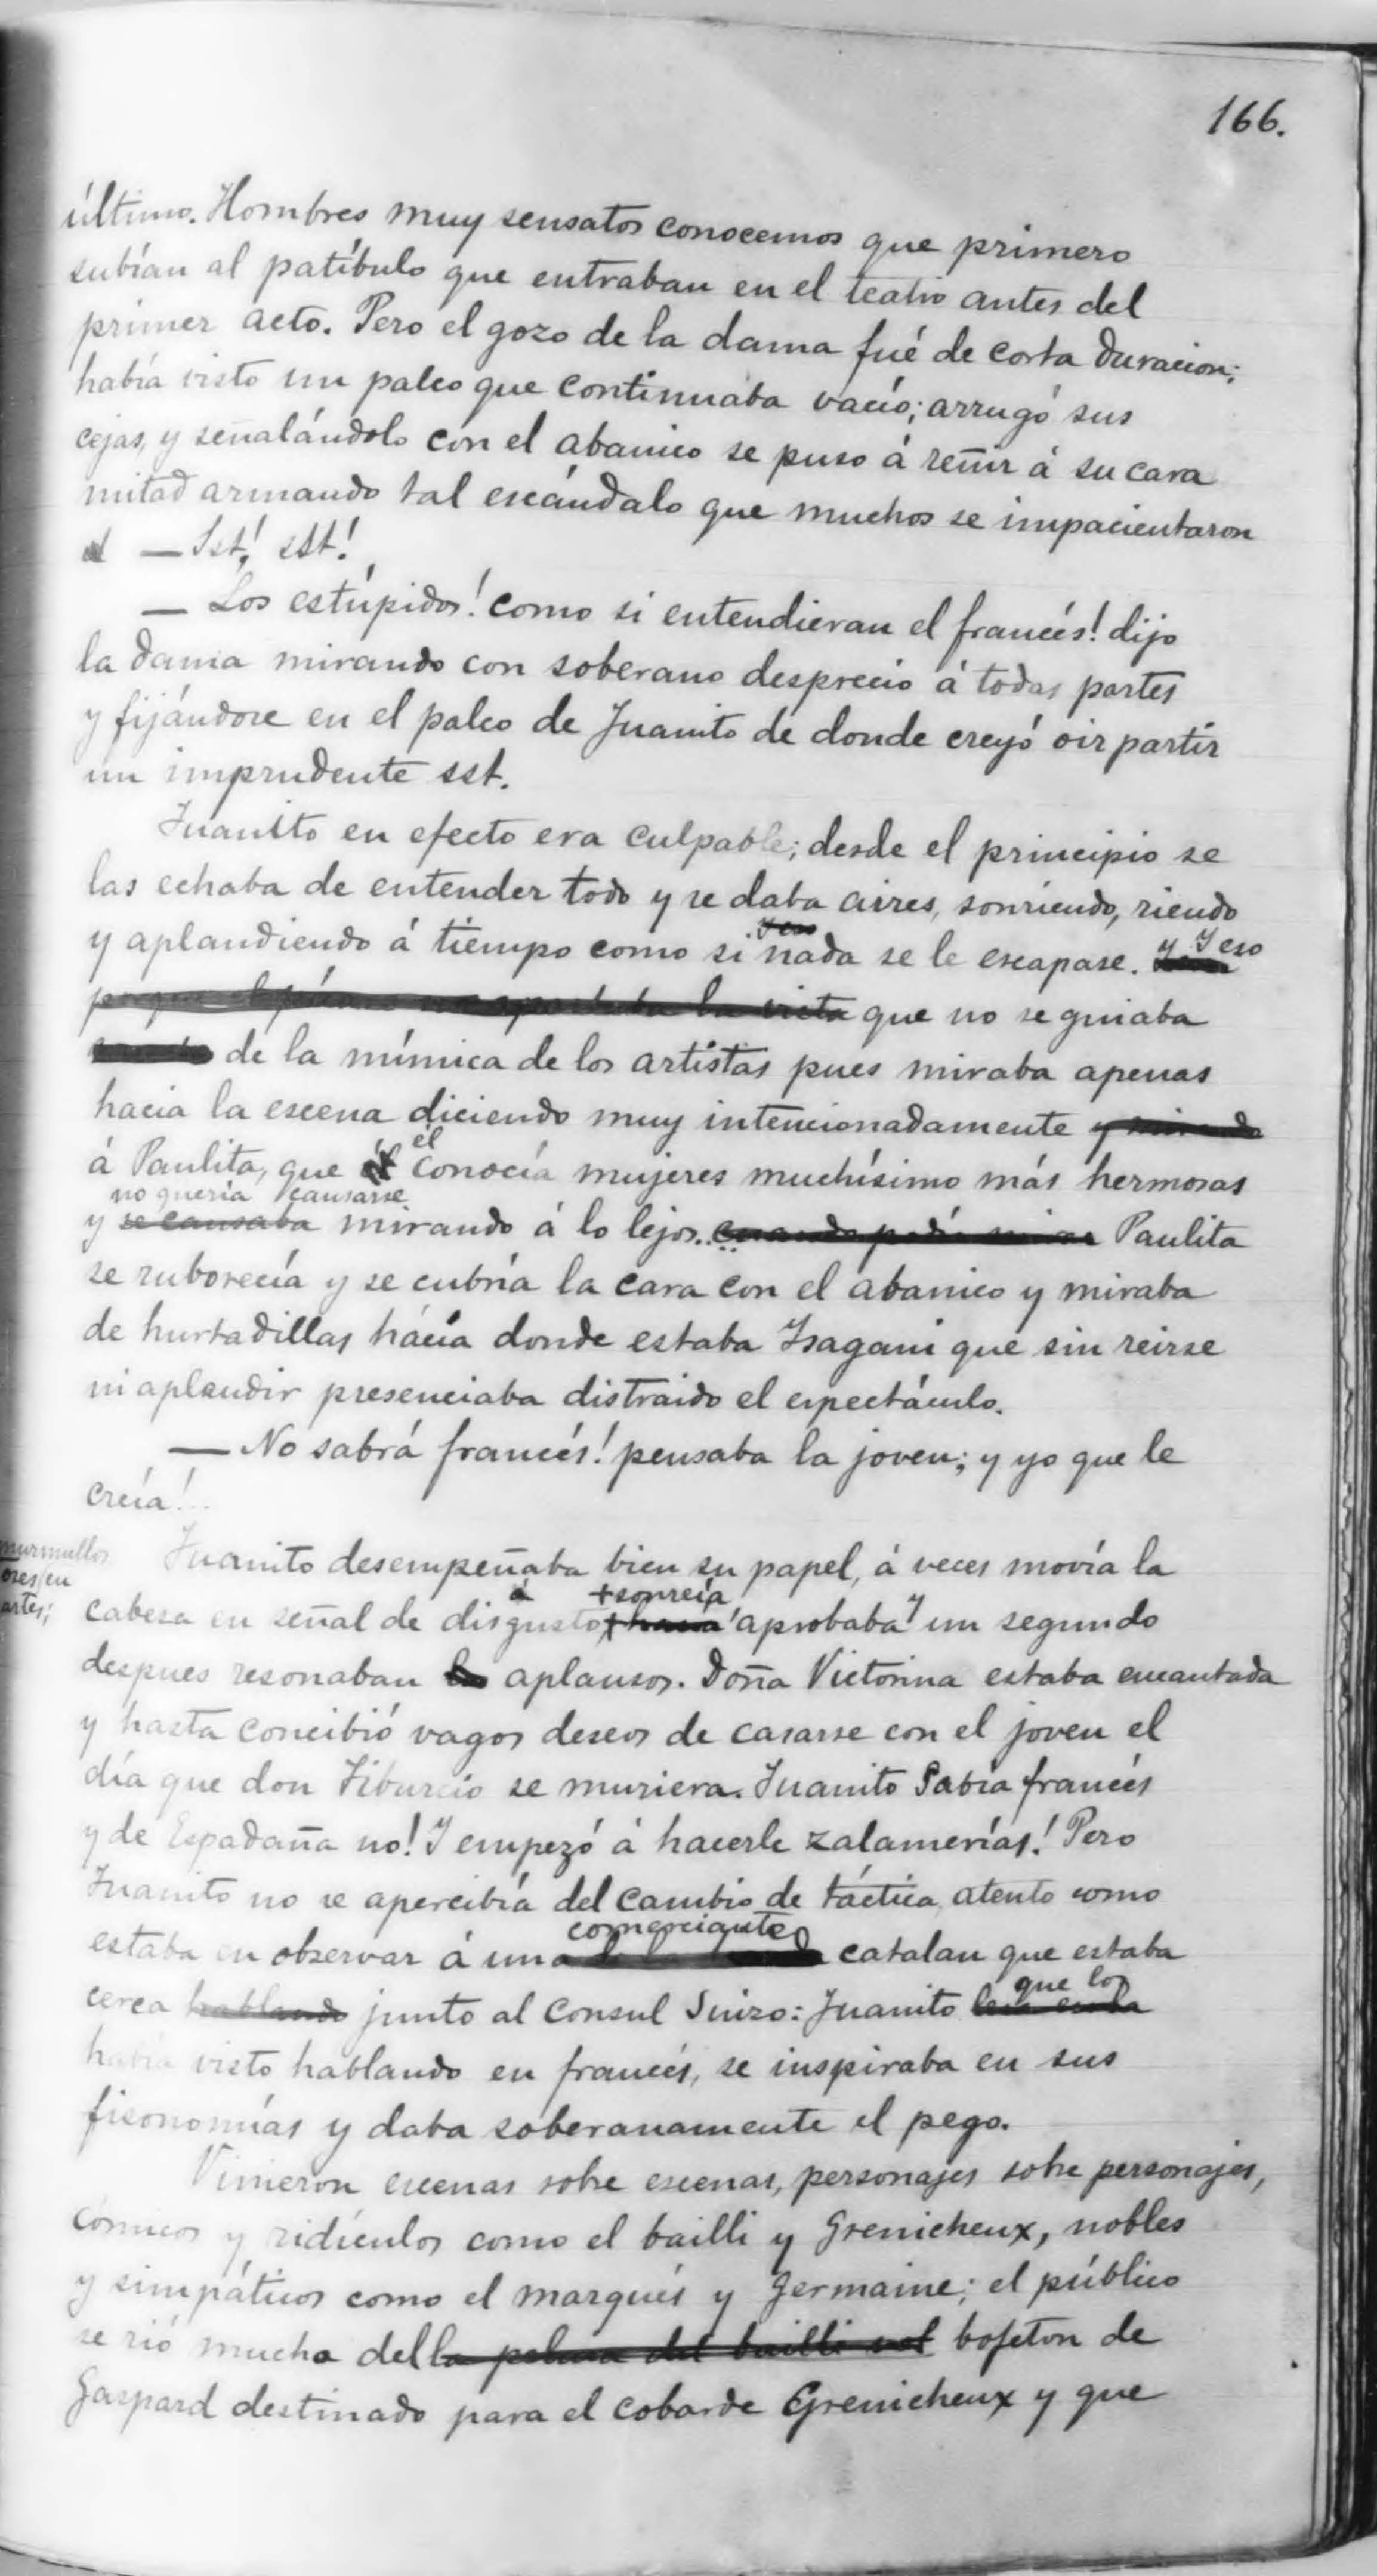 166.
último. Hombres muy sensatos conocemos que primero
subían al patíbulo que entraban en el teatro antes del
primer acto. Pero el gozo de la dama fué de corta duracion;
había visto un palco que continuaba vacío; arrugó sus
cejas, y señalándolo con el abanico se puso á reñir á su cara
mitad armando tal escándalo que muchos se impacientaron
— Sst! sst!
— Los estúpidos! como si entendieran el francés! dijo
la dama mirando con soberano desprecio á todas partes
y fijándose en el palco de Juanito de donde creyó oir partir
un imprudente sst.
Juanito en efecto era culpable; desde el principio se
las echaba de entender todo y se daba aires, sonriendo, riendo
y aplaudiendo á tiempo como si nada se le escapase. Y eso
la vista que no se guiaba
de la mímica de los artistas pues miraba apenas
hacia la escena diciendo muy intencionadamente
á Paulita, que él conocía mujeres muchísimo más hermosas
no quería cansarse
y se cansaba mirando á lo lejos... Paulita
se ruborecía y se cubría la cara con el abanico y miraba
de hurtadillas hácia donde estaba Isagani que sin reirse
ni aplaudir presenciaba distraido el espectáculo.
— No sabrá francés! pensaba la joven; y yo que le
creía!..
murmullos
Juanito desempeñaba bien su papel, á veces movía la
ores/en
+sonreía
artes;
cabeza en señal de disgusto, aprobaba y un segundo
despues resonaban aplausos. Doña Victorina estaba encantada
y hasta concibió vagos deseos de casarse con el joven el
día que don Tiburcio se muriera. Juanito sabía francés
y de Espadaña no! Y empezó á hacerle zalamerías! Pero
Juanito no se apercibía del cambio de táctica, atento como
comerciante
estaba en observar á un catalan que estaba
que los
cerca hablando junto al Consul Suizo: Juanito
había visto hablando en francés, se inspiraba en sus
fisonomías y daba soberanamente el pego.
Vinieron escenas sobre escenas, personajes sobre personajes,
cómicos y ridículos como el bailli y Grenicheux, nobles
y simpáticos como el marqués y Germaine; el público
se rió mucho del bofeton de
Gaspard destinado para el cobarde Grenicheux y que